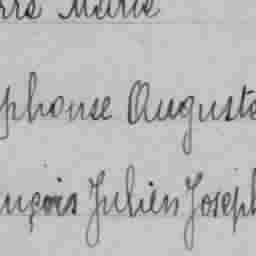 rrs Marie
phonse Auguste
ançois Julien Joseph